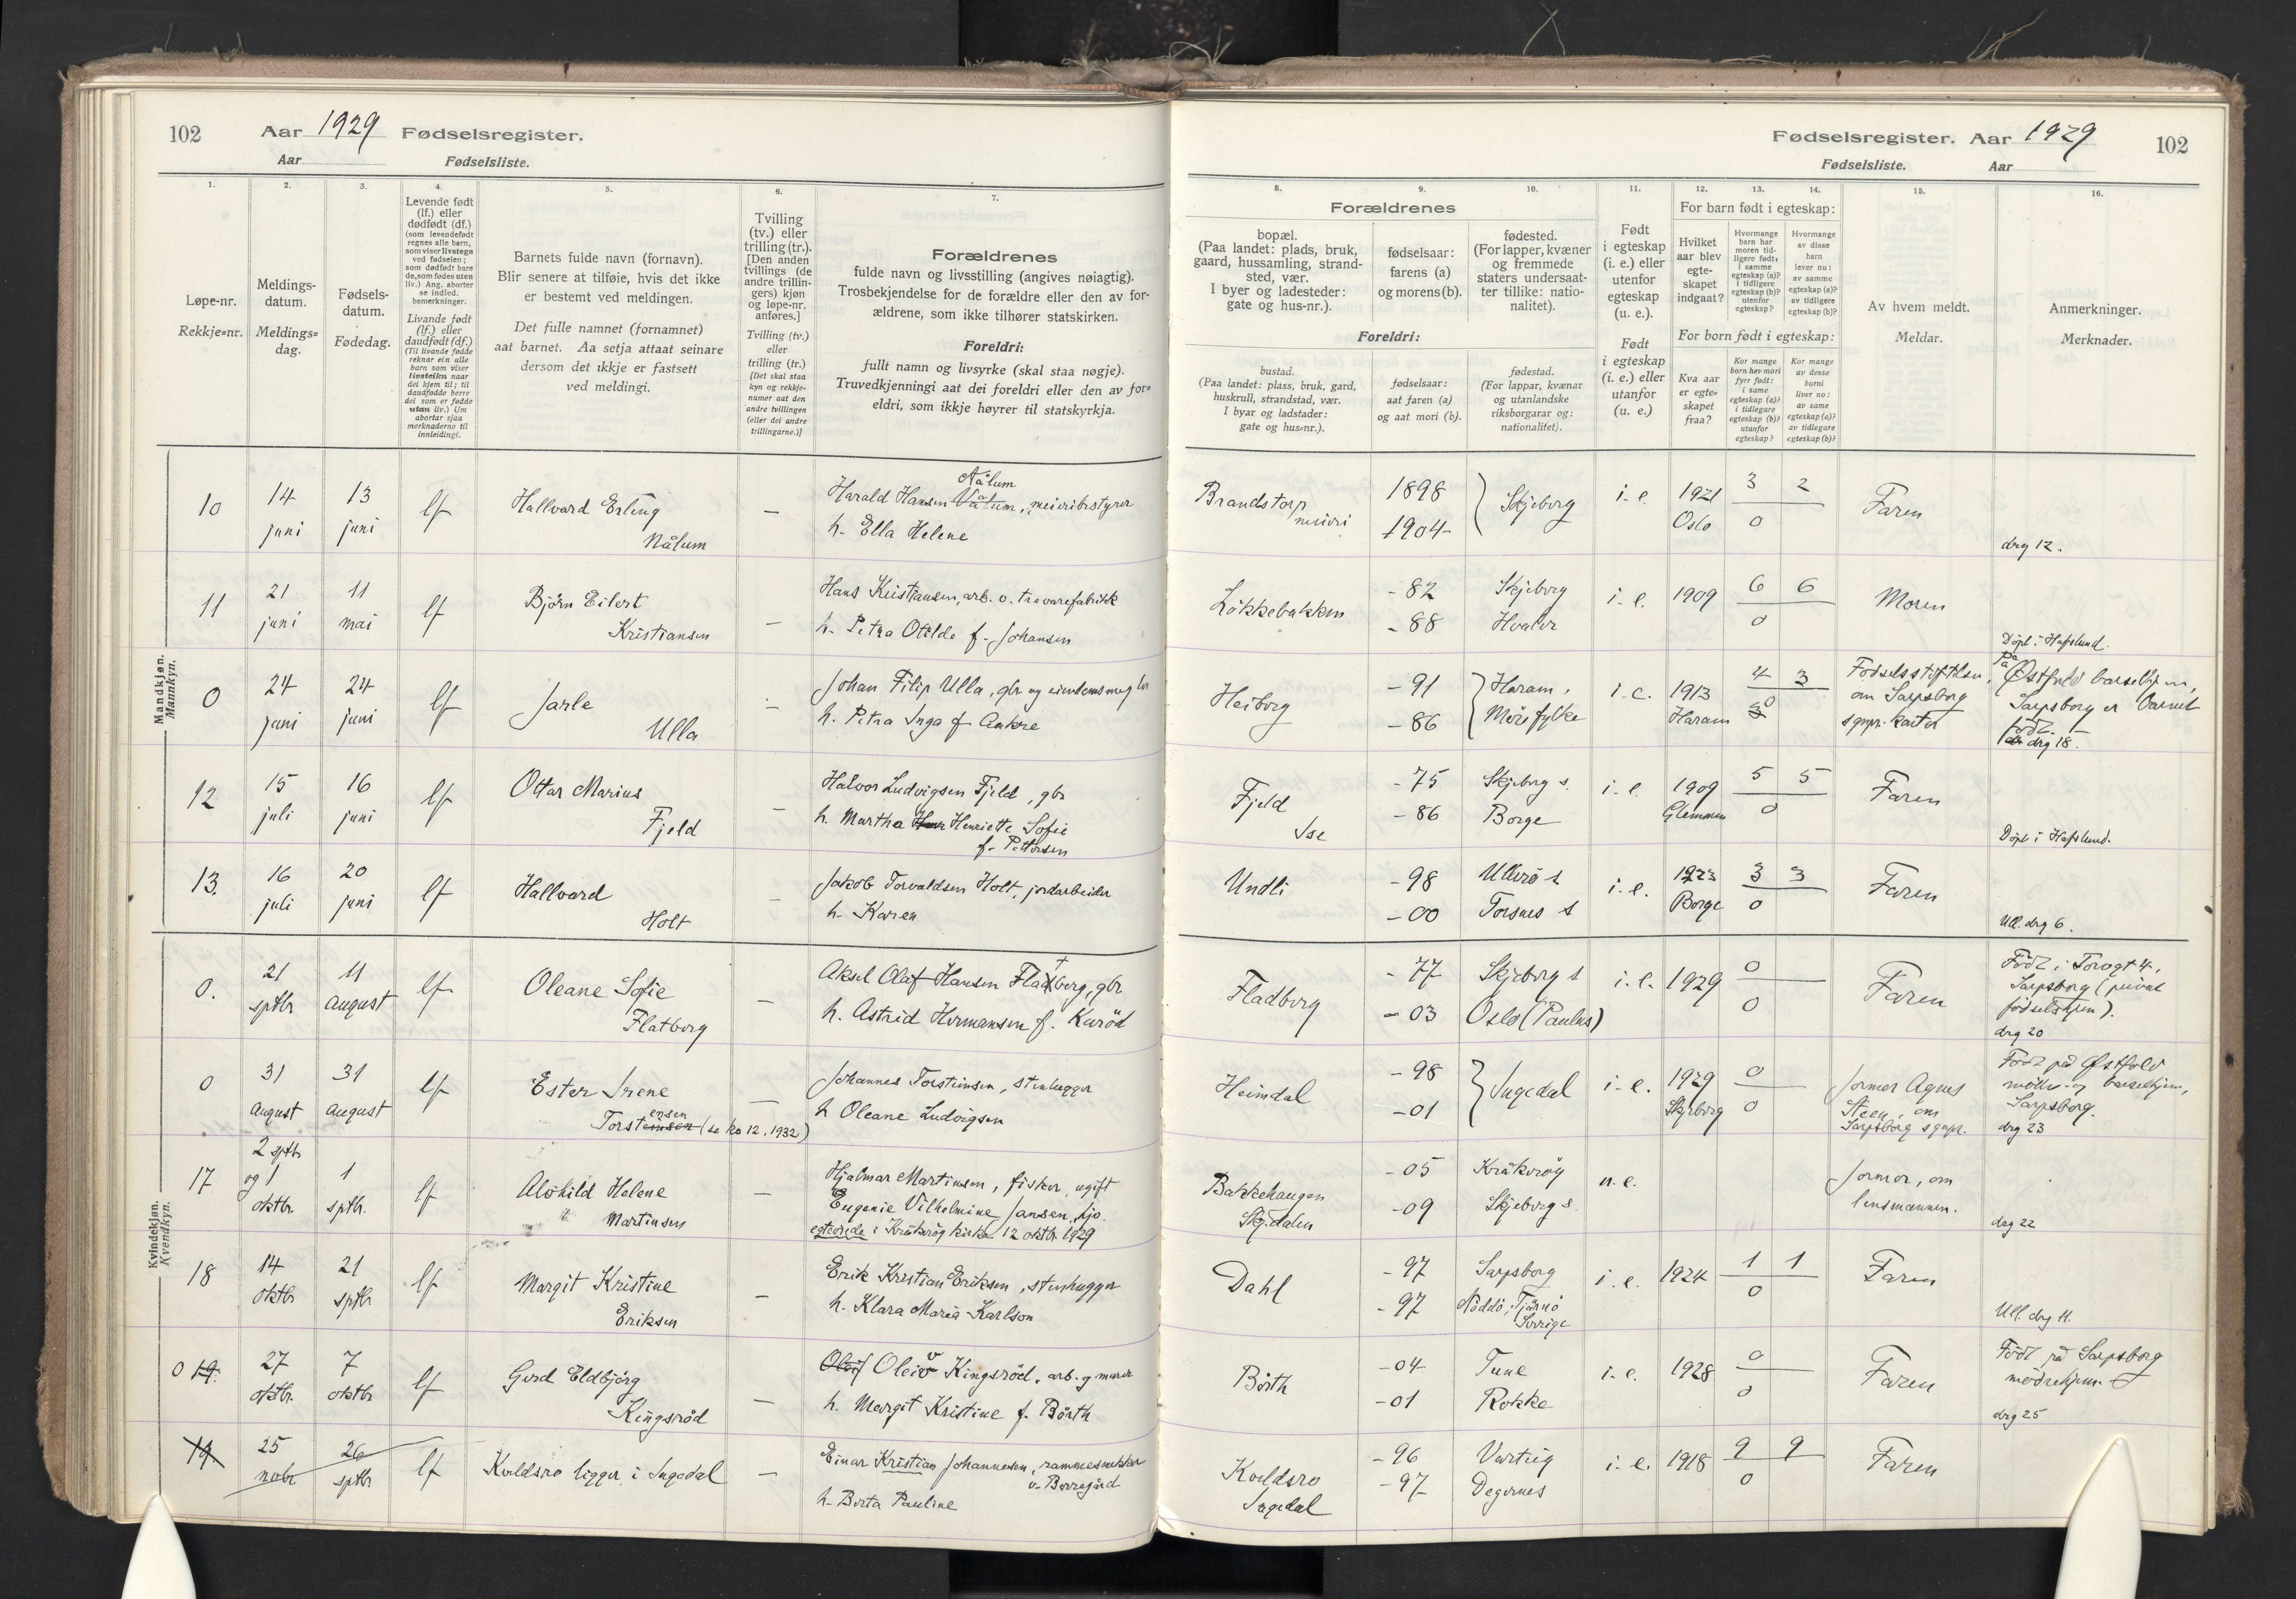 102 Aar 1929 Fødselsregister.
Aar Fødselsliste.
Fødselsregister. Aar 1929 102
Fødselsliste. Aar
1.
Løpe-nr.
Rekkje=nr.
2.
Meldings-
datum.
Meldings=
dag.
3.
Fødsels-
datum.
Fødedag.
4.
Levende født
(lf.) eller
dødfødt (df.)
(som levendefødt
regnes alle barn,
som viser livstegn
ved fødselen;
som dødfødt bare
de, som fødes uten
liv.) Ang. aborter
se indled.
bemerkninger.
Livande født
(lf.) eller
daudfødt (df.)
(Til livande fødde
reknar ein alle
barn som viser
livsteikn naar
dei kjem til; til
daudfødde berre
dei som er fødde
utan liv.) Um
abortar sjaa
merknaderne til
innleidingi.
5.
Barnets fulde navn (fornavn).
Blir senere at tilføie, hvis det ikke
er bestemt ved meldingen.
Det fulle namnet (fornamnet)
aat barnet. Aa setja attaat seinare
dersom det ikkje er fastsett
ved meldingi.
6.
Tvilling
(tv.) eller
trilling (tr.).
[Den anden
tvillings (de
andre trillin-
gers) kjøn
og løpe-nr.
anføres.]
Tvilling (tv.)
eller
trilling (tr.)
[Det skal staa
kyn og rekkje-
numer aat den
andre tvillingen
(eller dei andre
trillingarne.)]
7.
Forældrenes
fulde navn og livsstilling (angives nøiagtig).
Trosbekjendelse for de forældre eller den av for-
ældrene, som ikke tilhører statskirken.
Foreldri:
fullt namn og livsyrke (skal staa nøgje).
Truvedkjenningi aat dei foreldri eller den av for=
eldri, som ikkje høyrer til statskyrkja.
Forældrenes
8.
bopæl.
(Paa landet: plads, bruk,
gaard, hussamling, strand-
sted, vær.
I byer og ladesteder:
gate og hus-nr.).
9.
fødselsaar:
farens (a)
og morens (b).
10.
fødested.
(For lapper, kvæner
og fremmede
staters undersaat-
ter tillike: natio-
nalitet).
Foreldri:
bustad.
(Paa landet: plass, bruk, gard,
huskrull, strandstad, vær.
I byar og ladstader:
gate og hus=nr.).
fødselsaar:
aat faren (a)
og aat mori (b).
fødestad.
(For lappar, kvænar
og utanlandske
riksborgarar og:
nationalitet).
11.
Født
i egteskap
(i. e.) eller
utenfor
egteskap
(u. e.).
Født
i egteskap
(i. e.) eller
utanfor
(u. e.)
For barn født i egteskap:
12.
Hvilket
aar blev
egte-
skapet
indgaat?
13.
Hvormange
barn har
moren tid-
ligere født:
i samme
egteskap (a)?
i tidligere
egteskap (b)?
utenfor
egteskap?
14.
Hvormange
av disse
barn
lever nu:
av samme
egteskap (a)?
av tidligere
egteskap (b)?
For born født i egteskap:
Kva aar
er egte-
skapet
fraa?
Kor mange
born hev mori
fyrr født:
i same
egteskap (a)?
i tidlegare
egteskap (b)?
utanfor
egteskap?
Kor mange
av desse
borni
liver no:
av same
egteskap (a)?
av tidlegare
egteskap (b)?
15.
Av hvem meldt.
Meldar.
16.
Anmerkninger.
Merknader.
Mandkjøn.
Mannkyn.
10 14 juni 13 juni lf Hallvard Erling Nålum — Harald Hansen Nålum, meieribestyrer
h. Ella Helene
Brandstorp meieri 1898 1904 Skjeberg i. e. 1921 Oslo 3 2 0 Faren drg 12.
11 21 juni 11 mai lf Bjørn Eilert Kristiansen — Hans Kristiansen, arb. v. trævarefabrikk
h. Petra Otilde f. Johansen
Løkkebakken -82 -88 Skjeberg Hvaler i. e. 1909 6 6 0 Moren Døpt i Hafslund.
0 24 juni 24 juni lf Jarle Ulla — Johan Filip Ulla, gbr og eiendomsmegler
h. Petra Inga f. Aakre
Heiborg -91 -86 Haram, Møre fylke i. e. 1913 Haram 4 3 0 Fødselsstiftelsen, om Sarpsborg sgnpr. kontor På Østfold barselhjem, Sarpsborg er barnet født. drg 18.
12 15 juli 16 juni lf Ottar Marius Fjeld — Halvor Ludvigsen Fjeld, gbr
h. Martha Henriette Sofie
f. Pettersen
Fjeld Ise -75 -86 Skjeberg s. Borge i. e. 1909 Glemmen 5 5 0 Faren Døpt i Hafslund.
13. 16 juli 20 juni lf Hallvard Holt — Jakob Torvaldsen Holt, jordarbeider
h. Karen
Undli -98 -00 Ullerø s Torsnes s i. e. 1923 Borge 3 3 0 Faren Ull. drg 6.
Kvindekjøn.
Kvendkyn.
0. 21 sptbr 11 august lf Oleane Sofie Flatberg — Aksel Olaf Hansen Flatberg, gbr
h. Astrid Hermansen f. Karød
Fladberg -77 -03 Skjeberg s Oslo (Paulus) i. e. 1929 0 0 Faren Født i Torvgt 4, Sarpsborg (privat fødselshjem). drg 20
0 31 august 31 august lf Ester Irene Torsteinsen ensen (se ko 12, 1932) — Johannes Torsteinsen, stenhugger
h Oleane Ludvigsen
Heimdal -98 -01 Ingedal i. e. 1929 Skjeberg 0 0 Jormor Agnes Steen, om Sarpsborg sgnpr. Født på Østfold mødre- og barselhjem, Sarpsborg. drg 23
17 2 sptbr og 1 oktbr. 1 sptbr. lf Alvhild Helene Martinsen — Hjalmar Martinsen, fisker, ugift
Eugenie Vilhelmine Jansen, hjv.
egteviede i Kråkerøy kirke 12 oktbr. 1929
Bakkehaugen Skj.dalen -05 -09 Kråkerøy Skjeberg s. u. e. Jormor, om lensmannen. drg 22
18 14 oktbr 21 sptbr lf Margit Kristine Eriksen — Erik Kristian Eriksen, stenhugger
h. Klara Maria Karlson
Dahl -97 -97 Sarpsborg Nøddø, Tjärnö Sverige i. e. 1924 1 1 0 Faren Ull. drg 11.
0 19. 27 oktbr. 7 oktbr lf Gerd Eldbjørg Kingsrød — Oleif Oleiv Kingsrød. arb. og murer
h. Margit Kristine f. Börth
Börth -04 -01 Tune Rokke i. e. 1928 0 0 Faren Født på Sarpsborg mødrehjem. drg 25
19 25 nobr 26 sptbr lf Kveldsro ligger i Ingedal — Einar Kristian Johannesen, rammesnekker
v. Borregård
h. Berta Pauline
Kveldsro Ingedal -96 -97 Varteig Degernes i. e. 1918 9 9 0 Faren